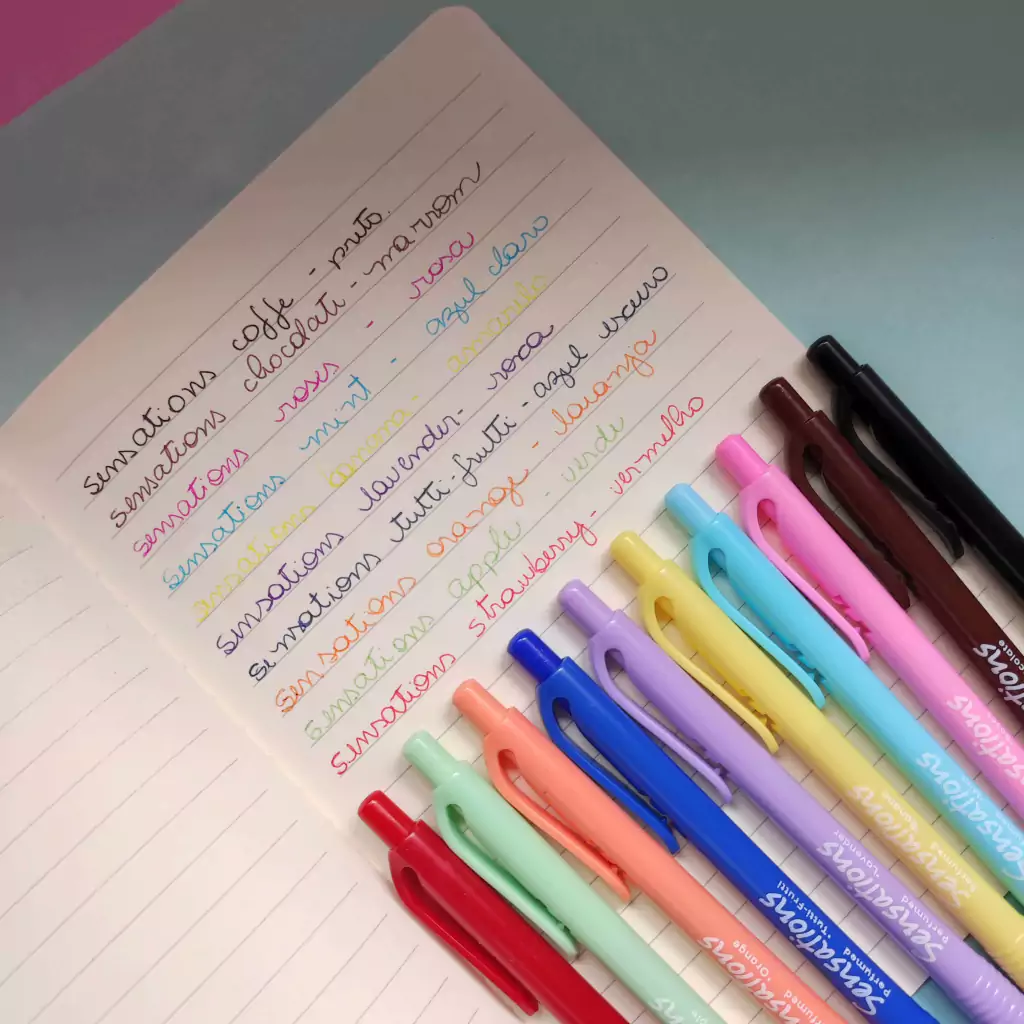 sensations coffe - preto.
sensations chocolati - marrom
sensations roses - rosa
sensations mint - azul claro
sensations banana - amarelo
sensations lavender - roxa
sensations tutti-frutti - azul escuro
sensations orange - laranja
sensations apple - verde
sensations strawberry - vermelho
colate
Sensations
Sensations
Sensations
Perfumed
Banana
Sensations
Perfumed
Lavender
Sensations
Perfumed
Tutti-Frutti
Sensations
Perfumed
Orange